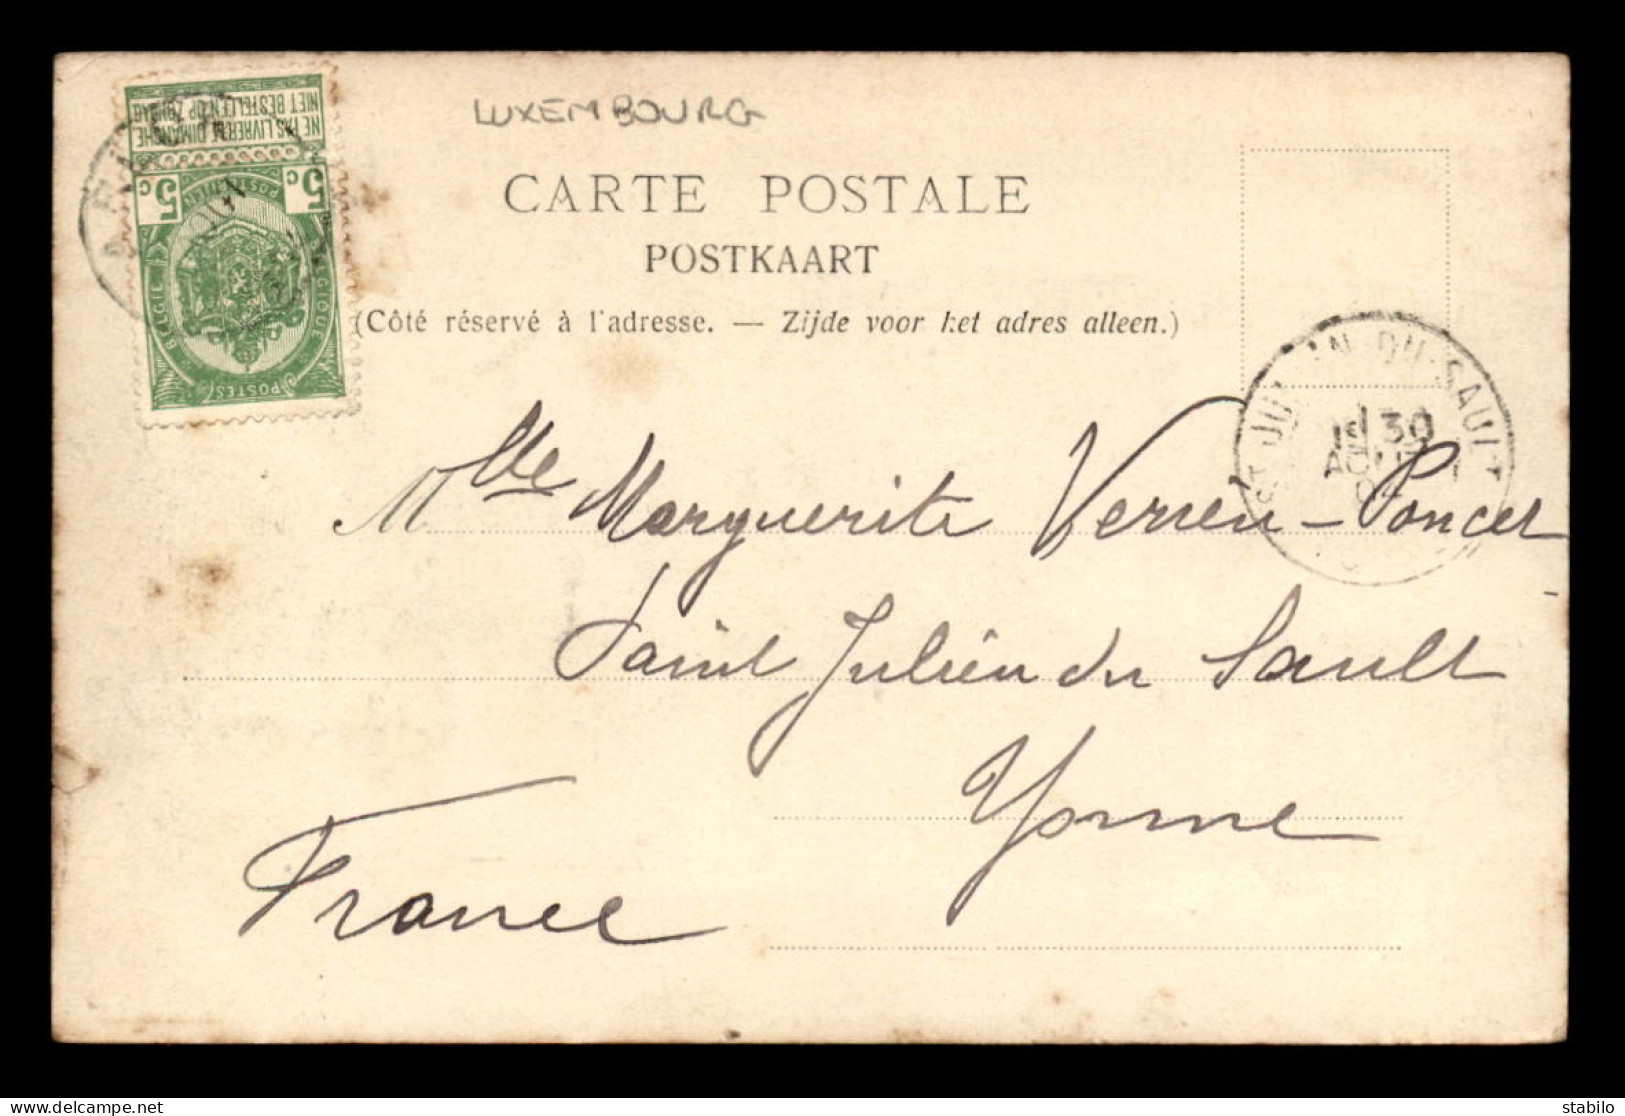 LUXEMBOURG
NE PAS LIVRER LE DIMANCHE
NIET BESTELLEN OP ZONDAG
5c 5c
POSTERIJEN
BELGIE BELGIQUE
POSTES
CARTE POSTALE
POSTKAART
(Côté réservé à l'adresse. — Zijde voor het adres alleen.)
ST JULIEN-DU-SAULT
30
AOUT
Mlle Marguerite Verrien-Poncet
Saint Julien du Sault
Yonne
France
delcampe.net
stabilo